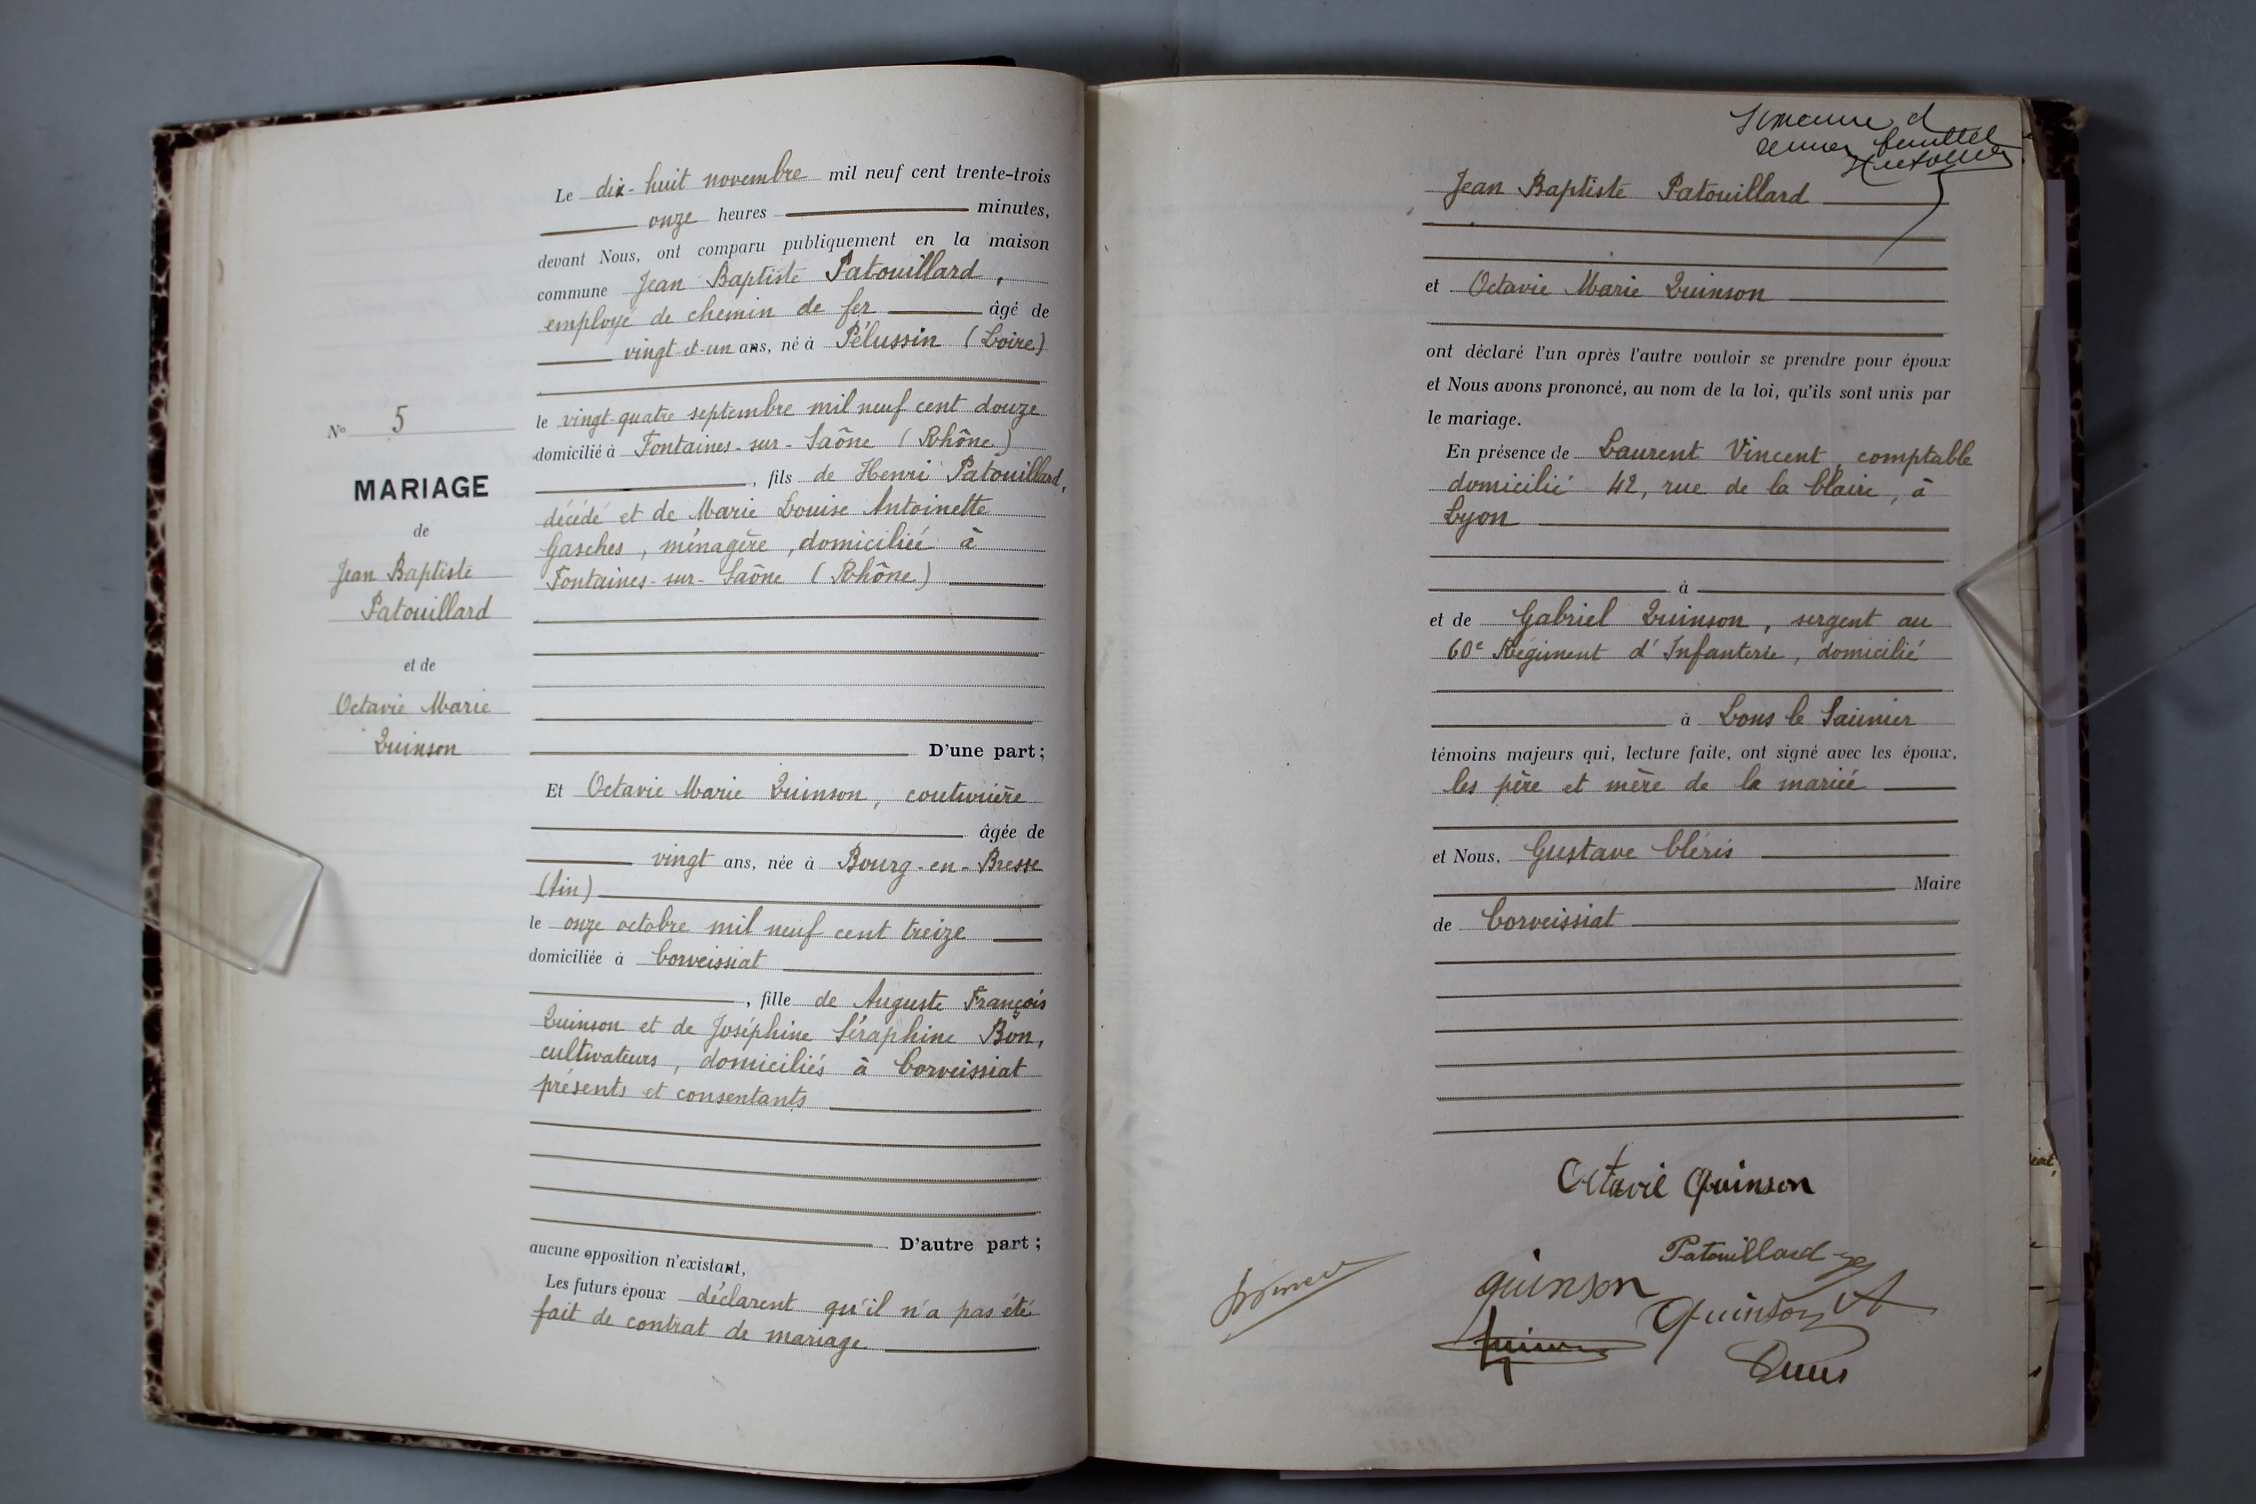 Le dix-huit novembre mil neuf cent trente-trois
onze heures minutes,
devant Nous, ont comparu publiquement en la maison
commune Jean Baptiste Patouillard,
employé de chemin de fer âgé de
vingt-et-un ans, né à Pélussin (Loire)
le vingt-quatre septembre mil neuf cent douze
domicilié à Fontaines-sur-Saône (Rhône)
, fils de Henri Patouillard,
décédé et de Marie Louise Antoinette
Gasches, ménagère, domiciliée à
Fontaines-sur-Saône (Rhône)
D'une part;
Et Octavie Marie Quinson, couturière
âgée de
vingt ans, née à Bourg-en-Bresse
(Ain)
le onze octobre mil neuf cent treize
domiciliée à Corveissiat
, fille de Auguste François
Quinson et de Joséphine Séraphine Bon,
cultivateurs, domiciliés à Corveissiat
présents et consentants
D'autre part;
aucune opposition n'existant,
Les futurs époux déclarent qu'il n'a pas été
fait de contrat de mariage
No 5
MARIAGE
de
Jean Baptiste
Patouillard
et de
Octavie Marie
Quinson
Jean Baptiste Patouillard
et Octavie Marie Quinson
ont déclaré l'un après l'autre vouloir se prendre pour époux
et Nous avons prononcé, au nom de la loi, qu'ils sont unis par
le mariage.
En présence de Laurent Vincent, comptable
domicilié 42, rue de la Claire, à
Lyon
à
et de Gabriel Quinson, sergent au
60e Régiment d'Infanterie, domicilié
à Lons le Saunier
témoins majeurs qui, lecture faite, ont signé avec les époux,
les père et mère de la mariée
et Nous, Gustave Cléris
Maire
de Corveissiat
Octavie Quinson
Patouillard
quinson
Quinson A